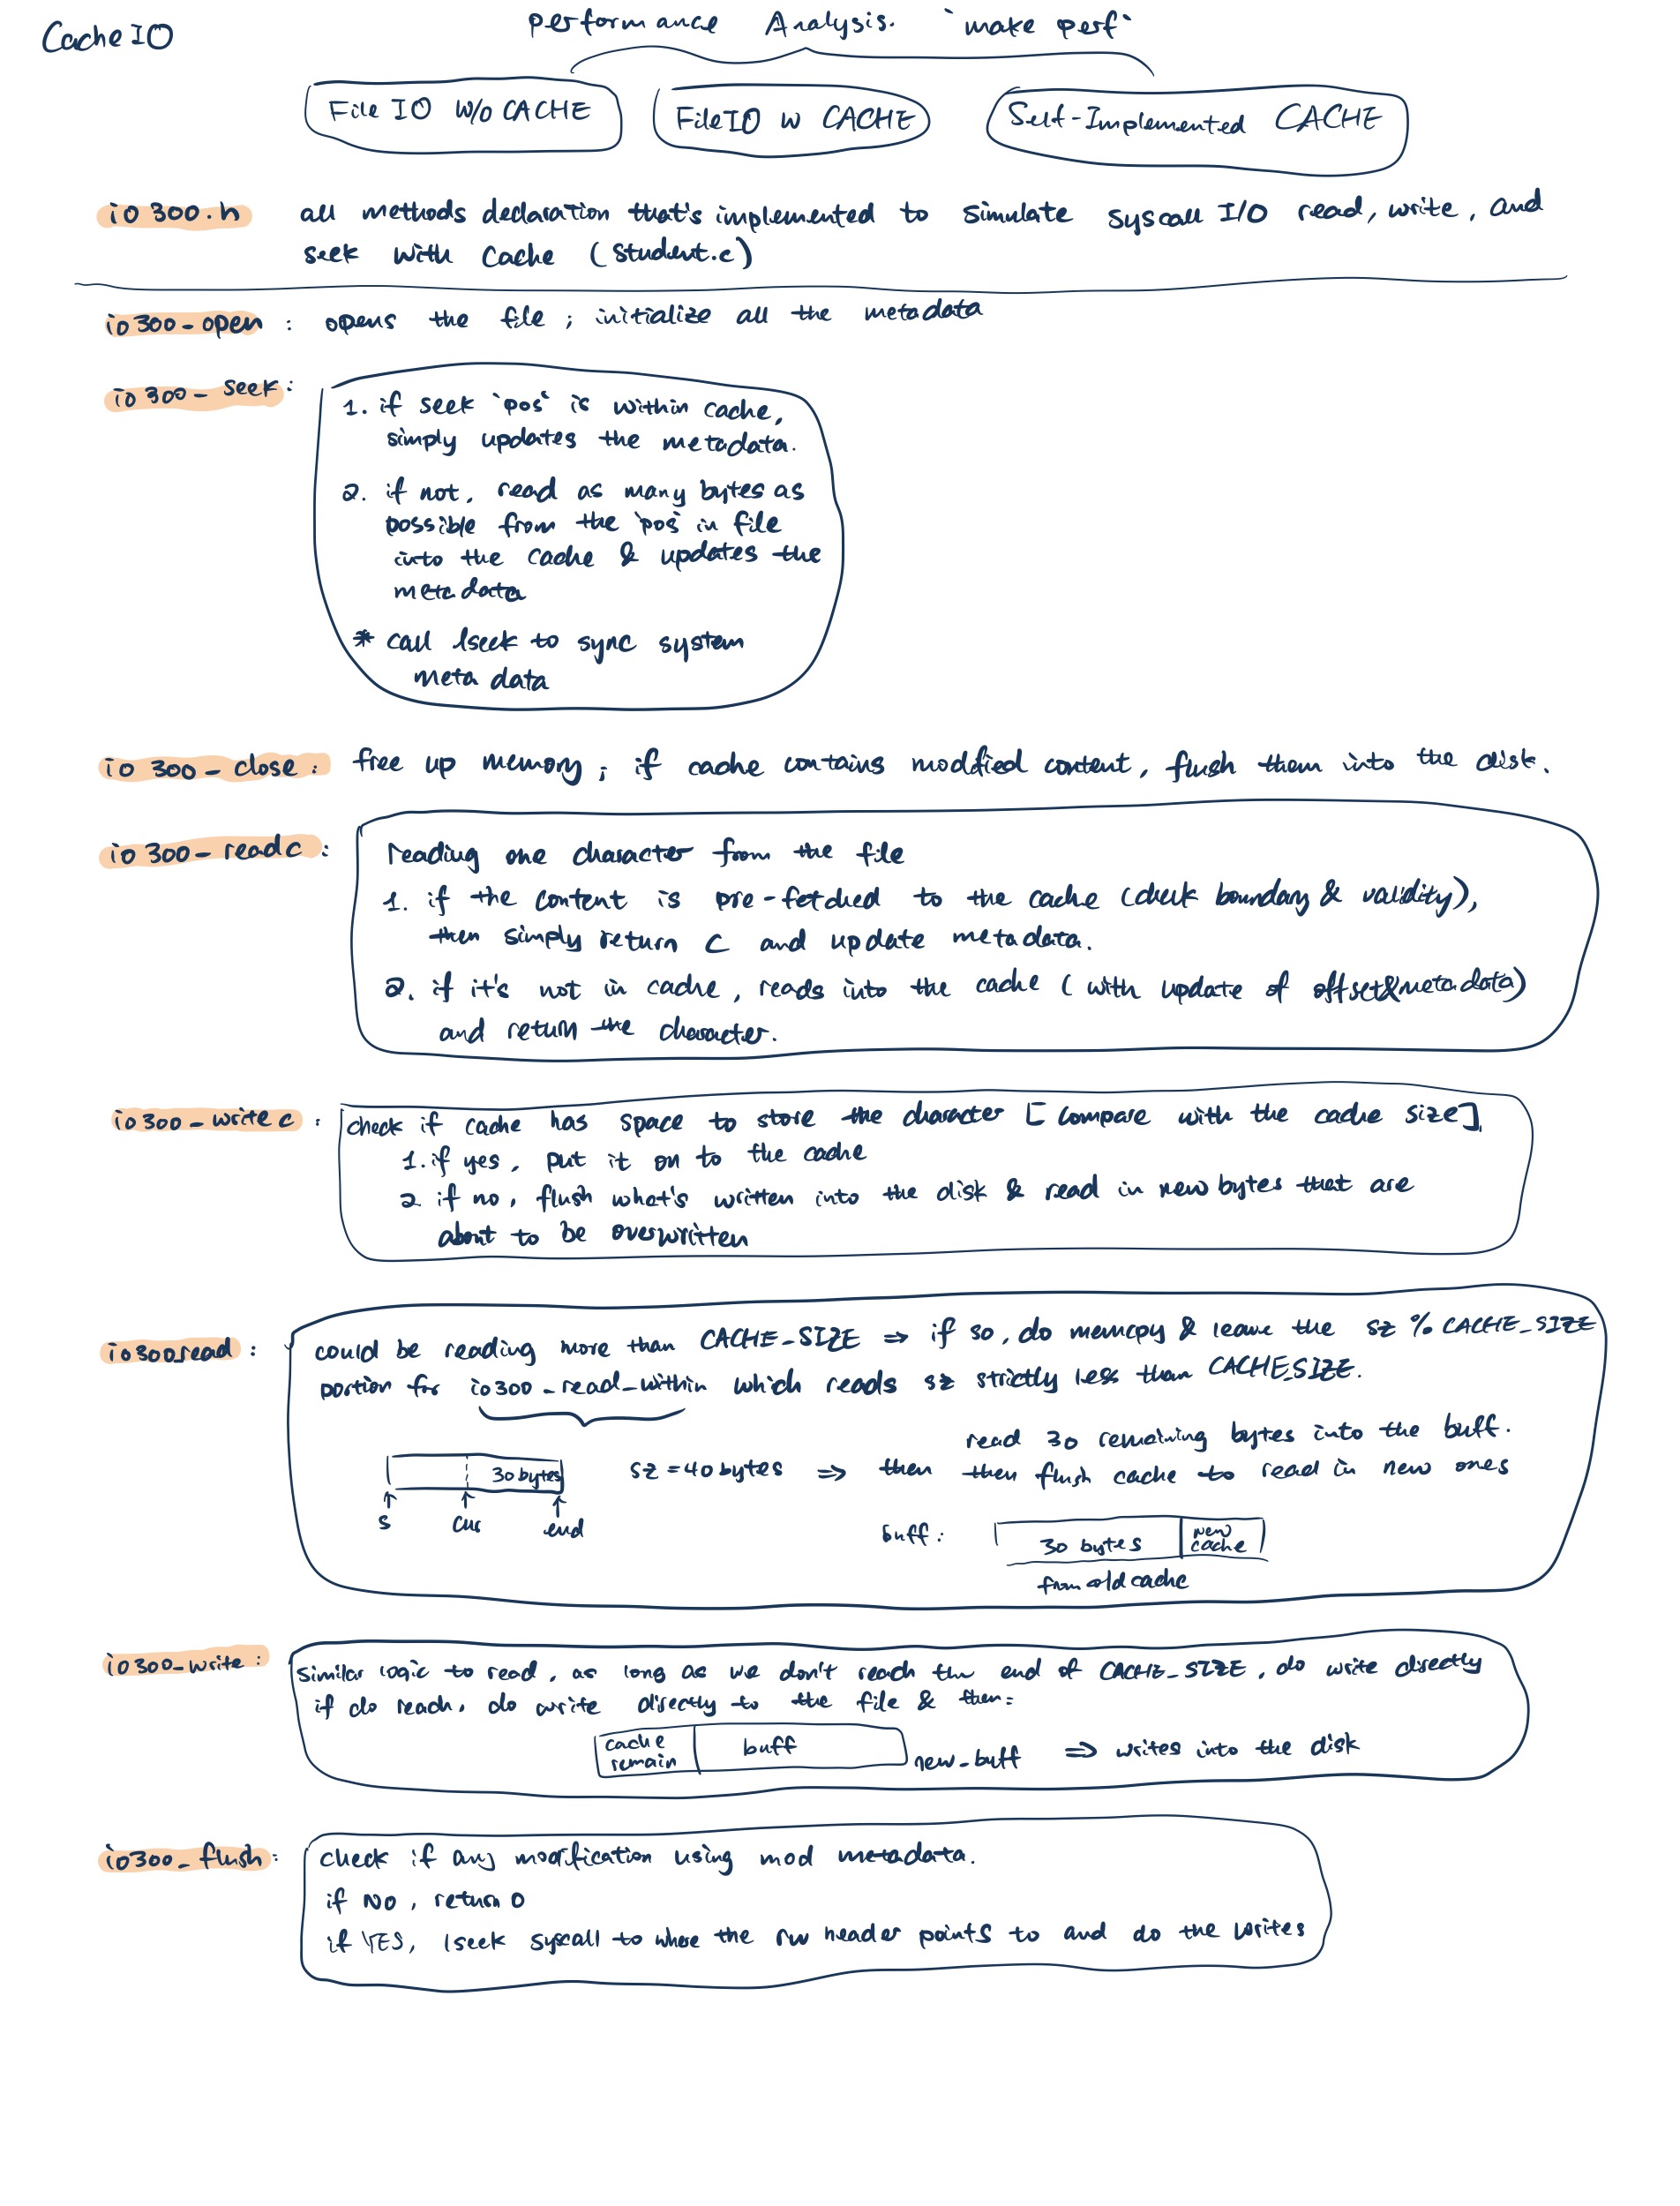 Cache IO
performance Analysis. `make perf`
File IO W/O CACHE
File IO W CACHE
Self-Implemented CACHE
io300.h all methods declaration that's implemented to simulate syscall I/O read, write, and
seek with Cache (student.c)
io300-open : opens the file ; initialize all the metadata
io300-seek :
1. if seek `pos` is within cache,
simply updates the metadata.
2. if not, read as many bytes as
possible from the `pos` in file
into the cache & updates the
metadata
* call lseek to sync system
meta data
io300-close : free up memory ; if cache contains modified content, flush them into the disk.
io300-readc :
reading one character from the file
1. if the content is pre-fetched to the cache (check boundary & validity),
then simply return c and update metadata.
2. if it's not in cache, reads into the cache (with update of offset&metadata)
and return the character.
io300-writec : check if cache has space to store the character [compare with the cache size]
1. if yes, put it on to the cache
2 if no, flush what's written into the disk & read in new bytes that are
about to be overwritten
io300_read : could be reading more than CACHE_SIZE ⇒ if so, do memcpy & leave the sz % CACHE_SIZE
portion for io300-read-within which reads sz strictly less than CACHE_SIZE.
read 30 remaining bytes into the buff.
30 bytes sz = 40 bytes ⇒ then then flush cache to read in new ones
s cur end
buff : 30 bytes new
cache
from old cache
io300-write : similar logic to read, as long as we don't reach the end of CACHE_SIZE, do write directly
if do reach, do write directly to the file & then:
cache
remain buff new_buff ⇒ writes into the disk
io300-flush : check if any modification using mod metadata.
if NO, return 0
if YES, lseek syscall to where the rw header points to and do the writes